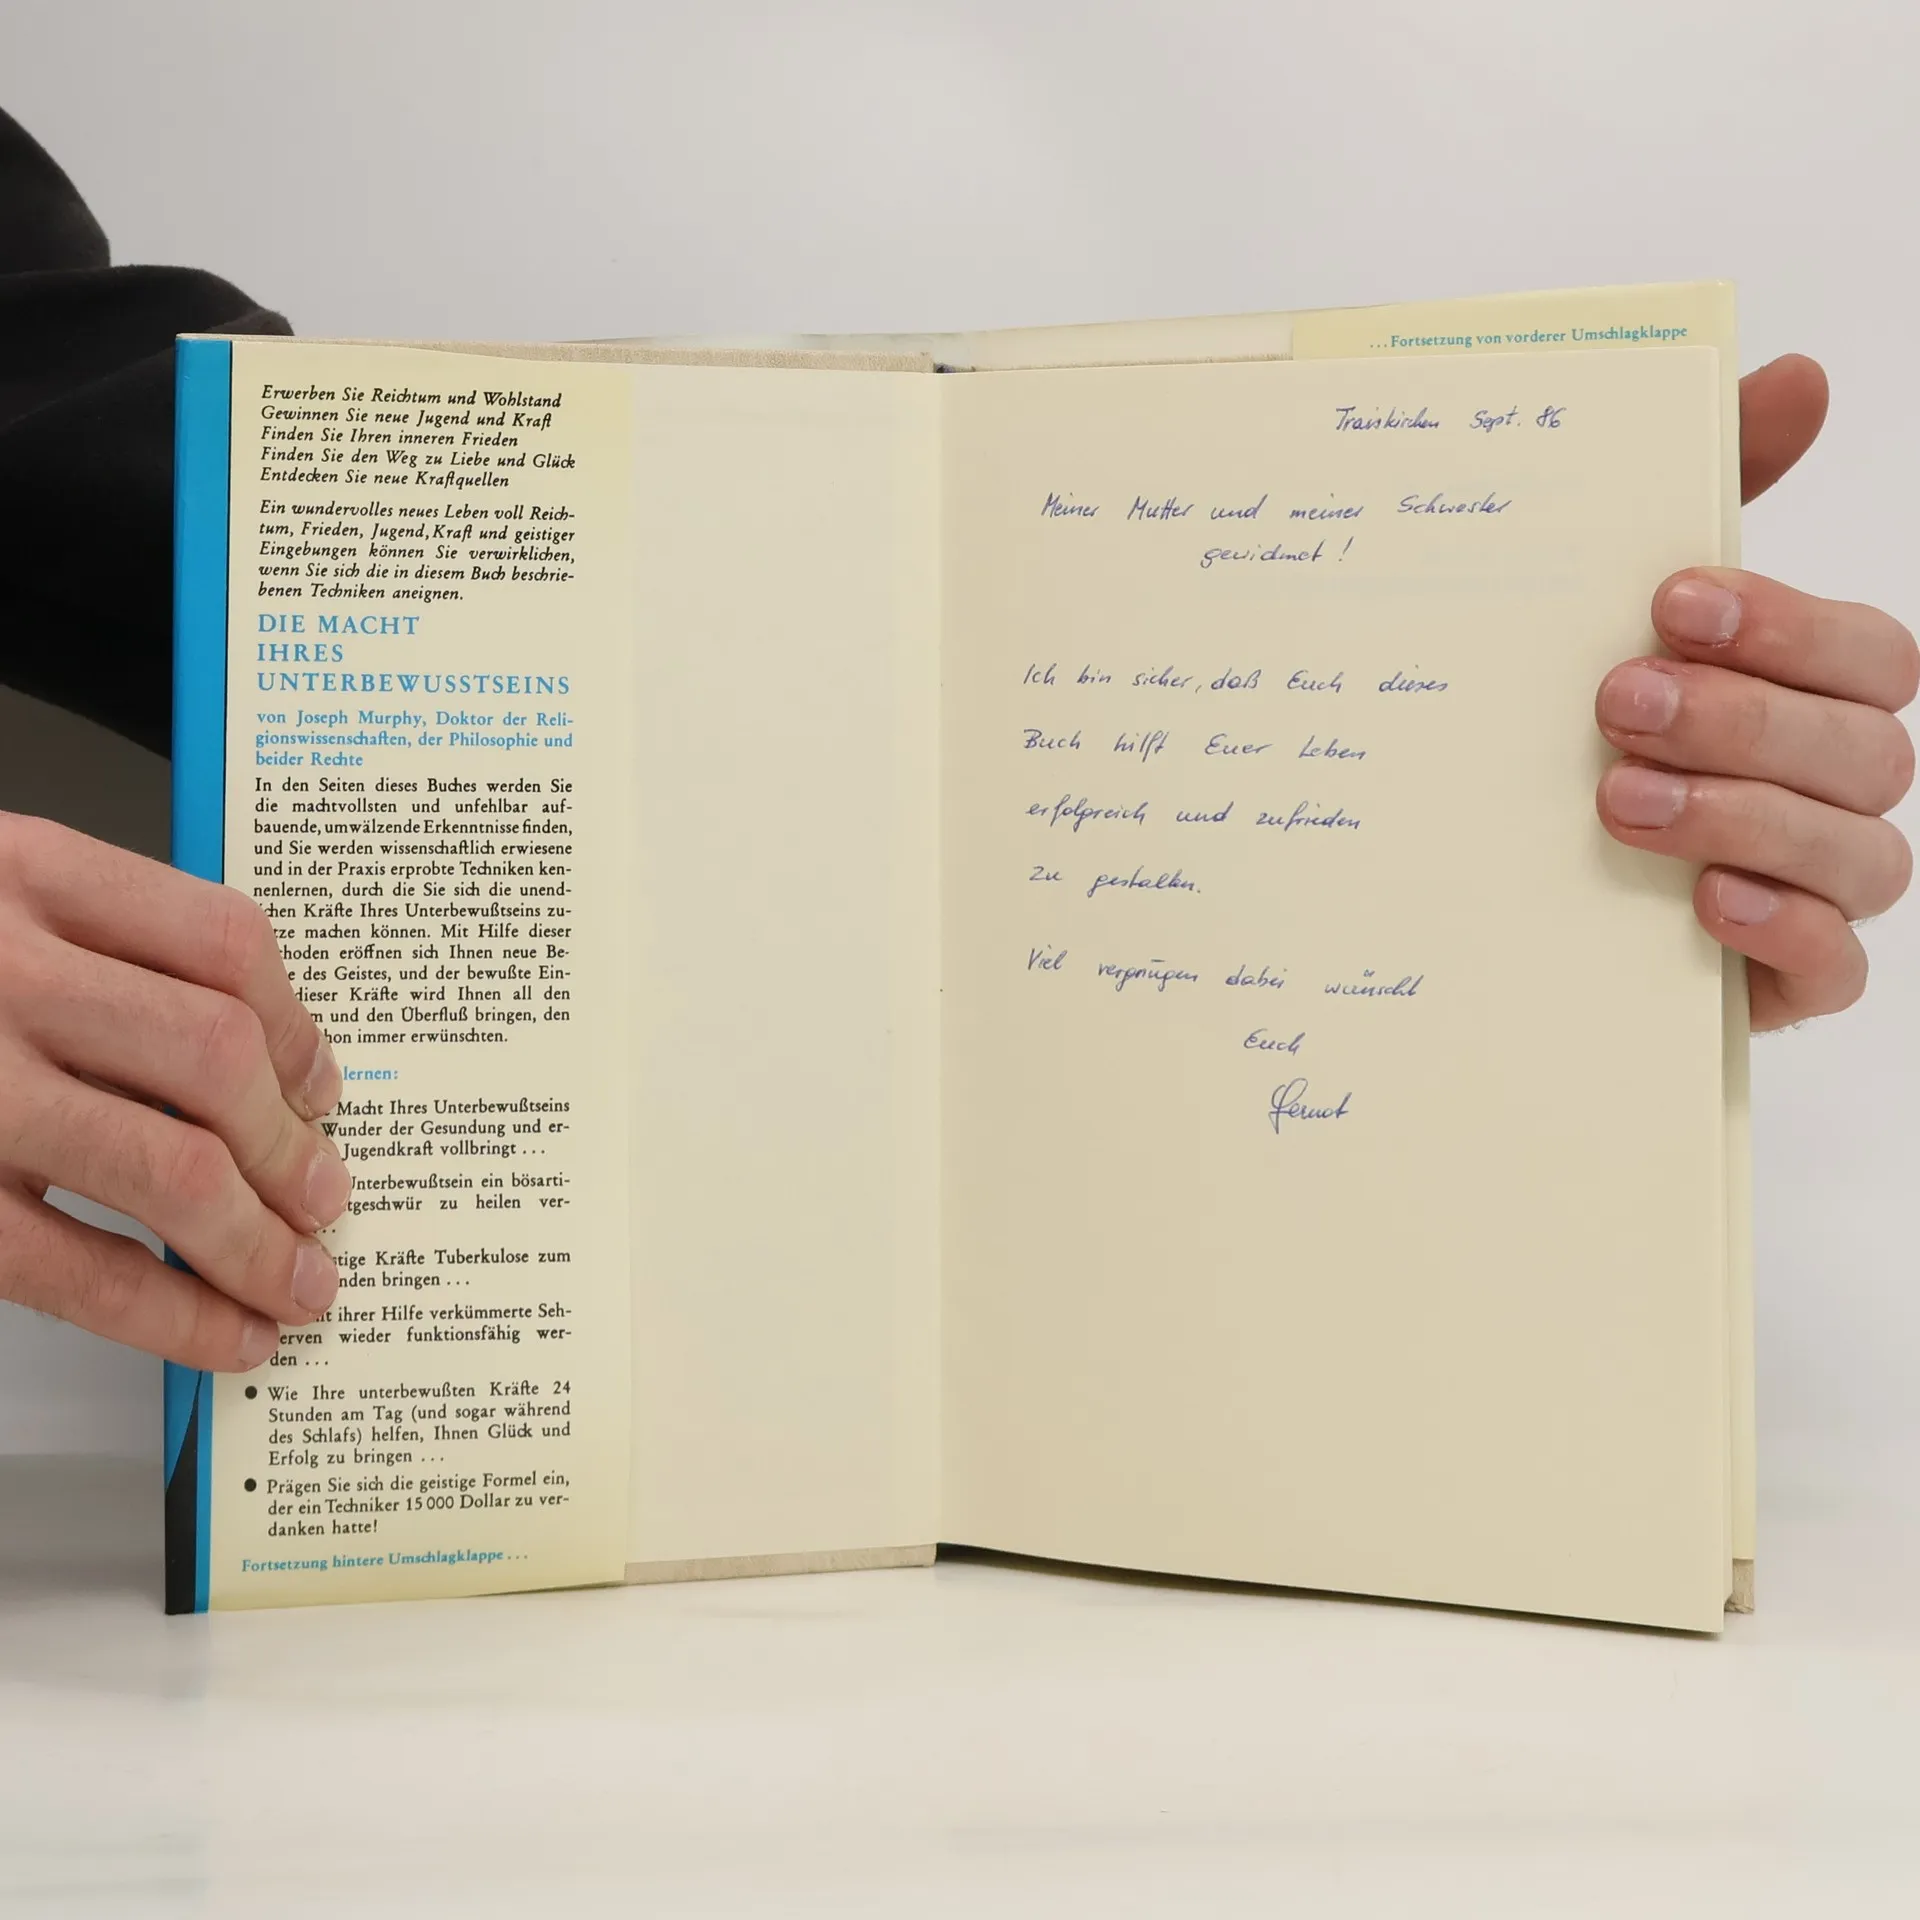 Erwerben Sie Reichtum und Wohlstand
Gewinnen Sie neue Jugend und Kraft
Finden Sie Ihren inneren Frieden
Finden Sie den Weg zu Liebe und Glück
Entdecken Sie neue Kraftquellen
Ein wundervolles neues Leben voll Reich-
tum, Frieden, Jugend, Kraft und geistiger
Eingebungen können Sie verwirklichen,
wenn Sie sich die in diesem Buch beschrie-
benen Techniken aneignen.
DIE MACHT
IHRES
UNTERBEWUSSTSEINS
von Joseph Murphy, Doktor der Reli-
gionswissenschaften, der Philosophie und
beider Rechte
In den Seiten dieses Buches werden Sie
die machtvollsten und unfehlbar auf-
bauende, umwälzende Erkenntnisse finden,
und Sie werden wissenschaftlich erwiesene
und in der Praxis erprobte Techniken ken-
nenlernen, durch die Sie sich die unend-
chen Kräfte Ihres Unterbewußtseins zu-
tze machen können. Mit Hilfe dieser
hoden eröffnen sich Ihnen neue Be-
e des Geistes, und der bewußte Ein-
dieser Kräfte wird Ihnen all den
m und den Überfluß bringen, den
hon immer erwünschten.
lernen:
Macht Ihres Unterbewußtseins
Wunder der Gesundung und er-
Jugendkraft vollbringt ...
Unterbewußtsein ein bösarti-
tgeschwür zu heilen ver-
...
stige Kräfte Tuberkulose zum
nden bringen ...
it ihrer Hilfe verkümmerte Seh-
erven wieder funktionsfähig wer-
den ...
● Wie Ihre unterbewußten Kräfte 24
Stunden am Tag (und sogar während
des Schlafs) helfen, Ihnen Glück und
Erfolg zu bringen ...
● Prägen Sie sich die geistige Formel ein,
der ein Techniker 15 000 Dollar zu ver-
danken hatte!
Fortsetzung hintere Umschlagklappe ...
...Fortsetzung von vorderer Umschlagklappe
Traiskirchen Sept. 86
Meiner Mutter und meiner Schwester
gewidmet !
Ich bin sicher, daß Euch dieses
Buch hilft Euer Leben
erfolgreich und zufrieden
zu gestalten.
Viel vergnügen dabei wünscht
Euch
Gernot